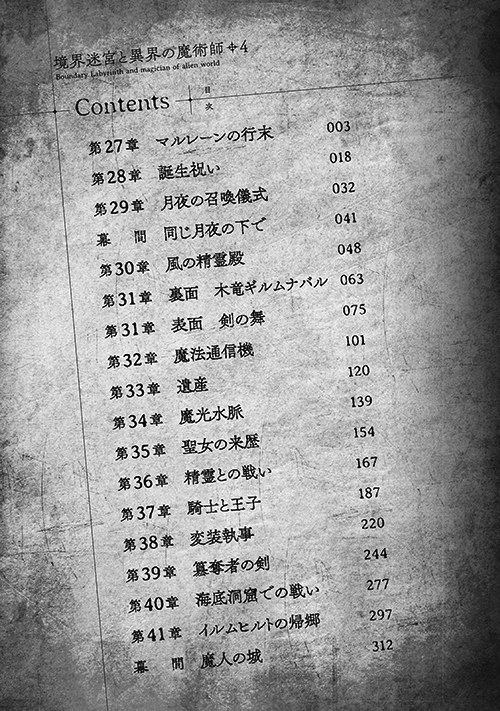 境界迷宮と異界の魔術師 4
Boundary Labyrinth and magician of alien world
Contents 目次
第27章 マルレーンの行末 003
第28章 誕生祝い 018
第29章 月夜の召喚儀式 032
幕　間 同じ月夜の下で 041
第30章 風の精霊殿 048
第31章 裏面　木竜ギルムナバル 063
第31章 表面　剣の舞 075
第32章 魔法通信機 101
第33章 遺産 120
第34章 魔光水脈 139
第35章 聖女の来歴 154
第36章 精霊との戦い 167
第37章 騎士と王子 187
第38章 変装執事 220
第39章 簒奪者の剣 244
第40章 海底洞窟での戦い 277
第41章 イルムヒルトの帰郷 297
幕　間 魔人の城 312